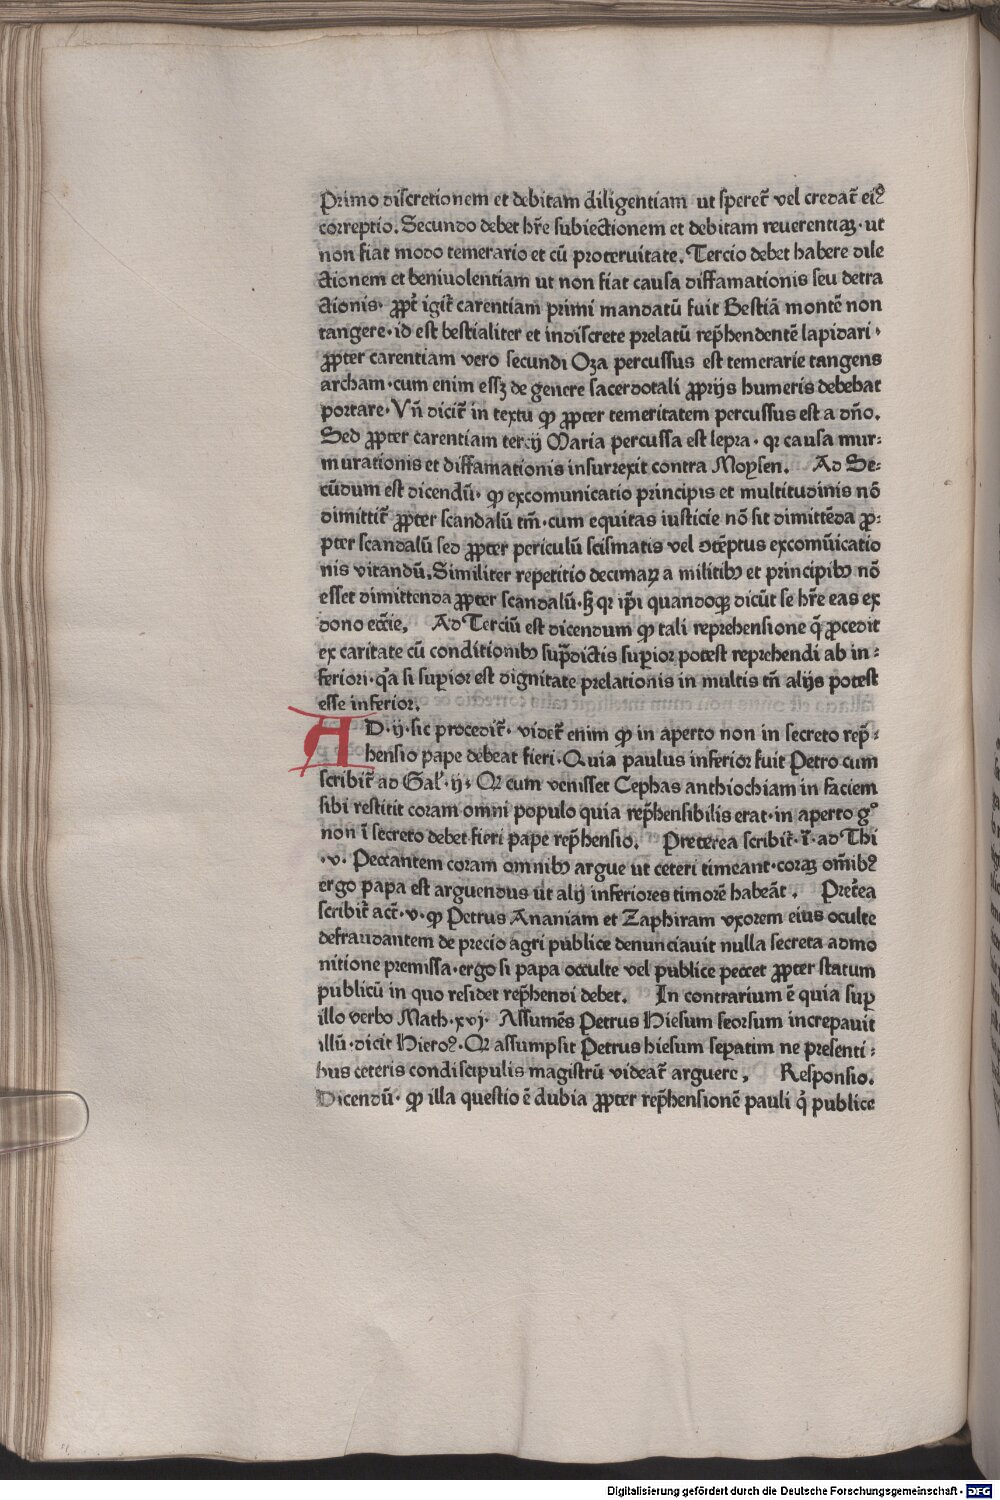 Primo discretionem et debitam diligentiam ut speret̃ vel credat̃ eiꝰ
correptio. Secundo debet hr̃e subiectionem et debitam reuerentiaꝫ· ut
non fiat modo temerario et cū proteruitate. Tercio debet habere dile
ctionem et beniuolentiam ut non fiat causa diffamationis seu detra
ctionis· ꝓpt̃ igit̃ carentiam primi mandatū fuit Bestiā montē non
tangere· id est bestialiter et indiscrete prelatū rep̃hendentē lapidari·
ꝓpter carentiam vero secundi Oza percussus est temerarie tangens
archam· cum enim essꝫ de genere sacerdotali ꝓprijs humeris debebat
portare· Vn̄ dicit̃ in textu ꝙ ꝓpter temeritatem percussus est a dn̄o.
Sed ꝓpter carentiam tercij Maria percussa est lepra· qr causa mur:
murationis et diffamationis insurrexit contra Moysen. Ad Se:
cūdum est dicendū· ꝙ excomunicatio principis et multitudinis nō
dimittit̃ ꝓpter scandalū tm̄· cum equitas iusticie nō sit dimittēda ꝓ:
pter scandalū sed ꝓpter periculū scismatis vel ↄtēptus excomūicatio
nis vitandū. Similiter repetitio decimaꝝ a militibꝫ et principibꝫ nō
esset dimittenda ꝓpter scandalū· sꝫ qr ip̄i quandoqꝫ dicūt se hr̃e eas ex
dono ecc̄ie, Ad Terciū est dicendum ꝙ tali reprehensione q̄ ꝓcedit
ex caritate cū conditionibꝫ sup̃dictis suꝑior potest reprehendi ab in:
feriori· qʼa si suꝑior est dignitate prelationis in multis tn̄ alijs potest
esse inferior.
AD· ij· sic procedit̃· videt̃ enim ꝙ in aperto non in secreto rep̃:
hensio pape debeat fieri· Quia paulus inferior fuit Petro cum
scribit̃ ad Gaľ· ij· Qr cum venisset Cephas anthiochiam in faciem
sibi restitit coram omni populo quia rep̃hensibilis erat· in aperto gͦ
non ī secreto debet fieri pape rep̃hensio. Preterea scribit̃· ī· ad Thi
·v· Peccantem coram omnibꝫ argue ut ceteri timeant· coraꝫ om̄ibꝫ
ergo papa est arguendus ut alij inferiores timorē habeāt. Pret̃ea
scribit̃ act̃· v· ꝙ Petrus Ananiam et Zaphiram vxorem eius occulte
defraudantem de precio agri publice denunciauit nulla secreta admo
nitione premissa· ergo si papa occulte vel publice peccet ꝓpter statum
publicū in quo residet rep̃hendi debet. In contrarium ē quia suꝑ
illo verbo Math· xvj· Assumēs Petrus Hiesum seorsum increpauit
illū· dicit Hieroꝰ· Qr assumpsit Petrus hiesum seꝑatim ne presenti:
bus ceteris condiscipulis magistrū videat̃ arguere, Responsio.
Dicendū· ꝙ illa questio ē dubia ꝓpter rep̃hensionē pauli qʼ publice
Digitalisierung gefördert durch die Deutsche Forschungsgemeinschaft · DFG